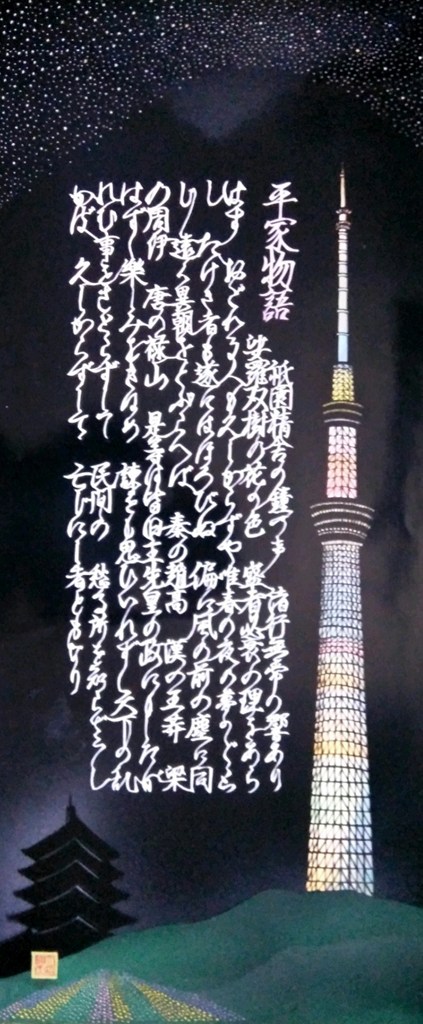 平家物語
祇園精舎の鐘のこゑ 諸行無常の響あり
娑羅双樹の花の色 盛者必衰の理をあら
はす おごれる人も久しからず 唯春の夜の夢のごと
し たけき者も遂にはほろびぬ 偏に風の前の塵に同
じ 遠く異朝をとぶらへば 秦の趙高 漢の王莽 梁
の周伊 唐の禄山 是等は皆旧主先皇の政にもしたが
はず 樂しみをきはめ 諫をも思ひいれず 天下の乱
れむ事をさとらずして 民間の 愁る所を知らざりし
かば 久しからずして 亡じにし者どもなり